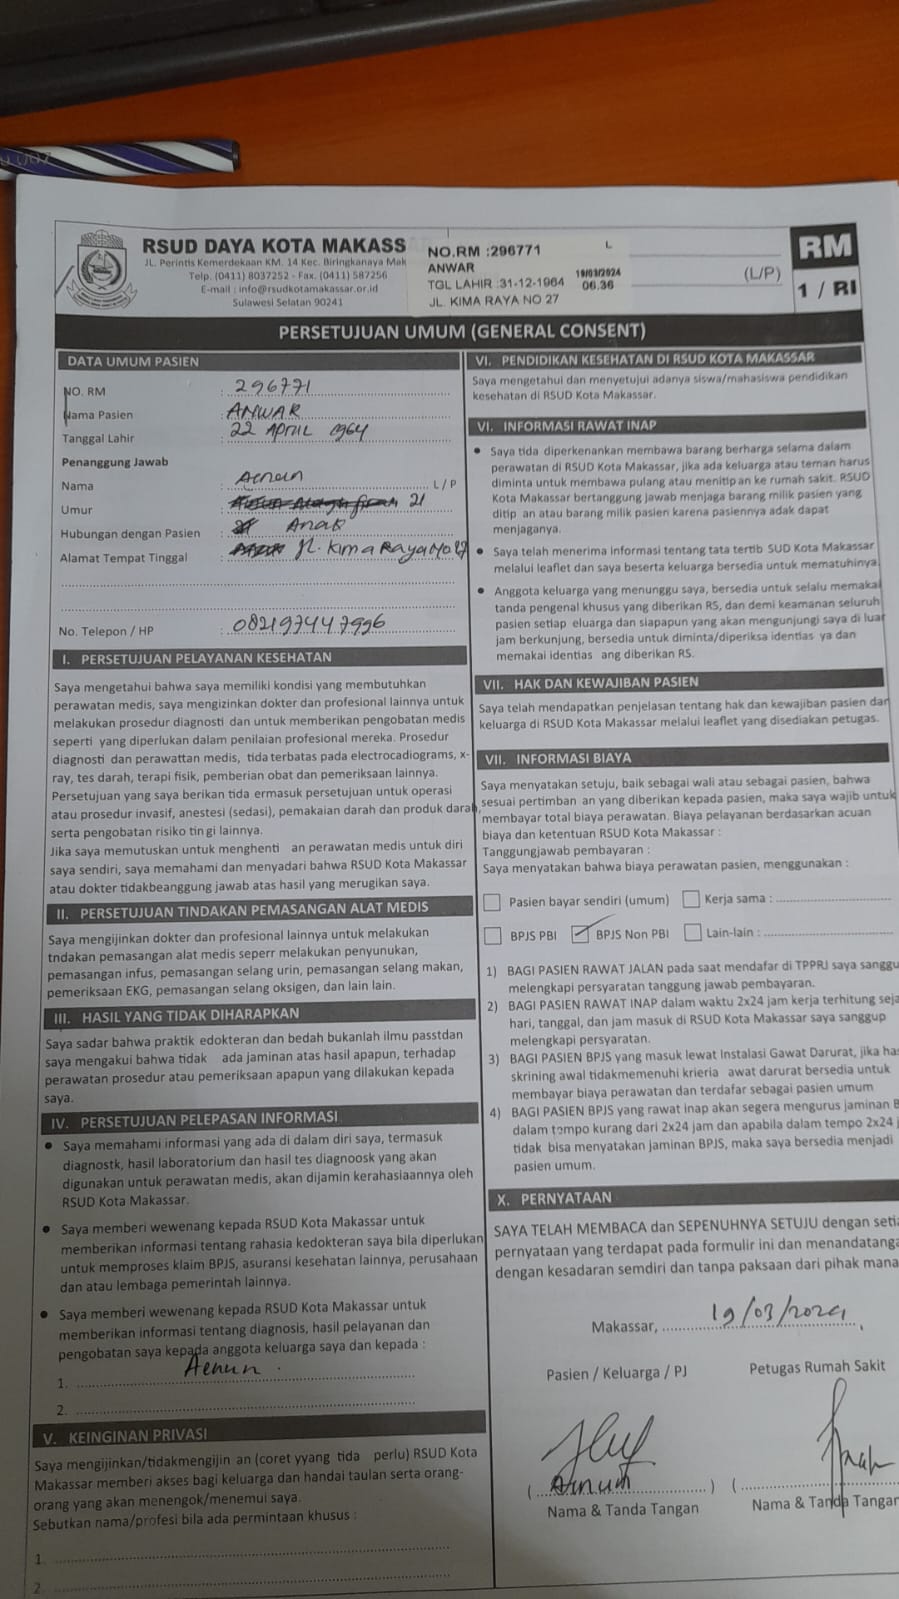 RSUD DAYA KOTA MAKASS
JL. Perintis Kemerdekaan KM. 14 Kec. Biringkanaya Mak
Telp. (0411) 8037252 - Fax. (0411) 587256
E-mail : info@rsudkotamakassar.or.id
Sulawesi Selatan 90241
NO.RM :296771 L
ANWAR
TGL LAHIR :31-12-1964
JL. KIMA RAYA NO 27
19/03/2024
06.36
(L/P)
RM
1 / RI
PERSETUJUAN UMUM (GENERAL CONSENT)
DATA UMUM PASIEN
NO. RM : 296771
Nama Pasien : ANWAR
Tanggal Lahir : 22 APRIL 1964
Penanggung Jawab
Nama : Aenun L / P
Umur : 21
Hubungan dengan Pasien : Anak
Alamat Tempat Tinggal : Jl. Kima Raya No 27
No. Telepon / HP : 082197447996
I. PERSETUJUAN PELAYANAN KESEHATAN
Saya mengetahui bahwa saya memiliki kondisi yang membutuhkan
perawatan medis, saya mengizinkan dokter dan profesional lainnya untuk
melakukan prosedur diagnosti dan untuk memberikan pengobatan medis
seperti yang diperlukan dalam penilaian profesional mereka. Prosedur
diagnosti dan perawattan medis, tida terbatas pada electrocadiograms, x-
ray, tes darah, terapi fisik, pemberian obat dan pemeriksaan lainnya.
Persetujuan yang saya berikan tida ermasuk persetujuan untuk operasi
atau prosedur invasif, anestesi (sedasi), pemakaian darah dan produk darah,
serta pengobatan risiko tin gi lainnya.
Jika saya memutuskan untuk menghenti an perawatan medis untuk diri
saya sendiri, saya memahami dan menyadari bahwa RSUD Kota Makassar
atau dokter tidakbeanggung jawab atas hasil yang merugikan saya.
II. PERSETUJUAN TINDAKAN PEMASANGAN ALAT MEDIS
Saya mengijinkan dokter dan profesional lainnya untuk melakukan
tndakan pemasangan alat medis seperr melakukan penyunukan,
pemasangan infus, pemasangan selang urin, pemasangan selang makan,
pemeriksaan EKG, pemasangan selang oksigen, dan lain lain.
III. HASIL YANG TIDAK DIHARAPKAN
Saya sadar bahwa praktik edokteran dan bedah bukanlah ilmu passtdan
saya mengakui bahwa tidak ada jaminan atas hasil apapun, terhadap
perawatan prosedur atau pemeriksaan apapun yang dilakukan kepada
saya.
IV. PERSETUJUAN PELEPASAN INFORMASI
● Saya memahami informasi yang ada di dalam diri saya, termasuk
diagnostk, hasil laboratorium dan hasil tes diagnoosk yang akan
digunakan untuk perawatan medis, akan dijamin kerahasiaannya oleh
RSUD Kota Makassar.
● Saya memberi wewenang kepada RSUD Kota Makassar untuk
memberikan informasi tentang rahasia kedokteran saya bila diperlukan
untuk memproses klaim BPJS, asuransi kesehatan lainnya, perusahaan
dan atau lembaga pemerintah lainnya.
● Saya memberi wewenang kepada RSUD Kota Makassar untuk
memberikan informasi tentang diagnosis, hasil pelayanan dan
pengobatan saya kepada anggota keluarga saya dan kepada :
1. Aenun
2.
V. KEINGINAN PRIVASI
Saya mengijinkan/tidakmengijin an (coret yyang tida perlu) RSUD Kota
Makassar memberi akses bagi keluarga dan handai taulan serta orang-
orang yang akan menengok/menemui saya.
Sebutkan nama/profesi bila ada permintaan khusus :
1.
2.
VI. PENDIDIKAN KESEHATAN DI RSUD KOTA MAKASSAR
Saya mengetahui dan menyetujui adanya siswa/mahasiswa pendidikan
kesehatan di RSUD Kota Makassar.
VI. INFORMASI RAWAT INAP
● Saya tida diperkenankan membawa barang berharga selama dalam
perawatan di RSUD Kota Makassar, jika ada keluarga atau teman harus
diminta untuk membawa pulang atau menitip an ke rumah sakit. RSUD
Kota Makassar bertanggung jawab menjaga barang milik pasien yang
ditip an atau barang milik pasien karena pasiennya adak dapat
menjaganya.
● Saya telah menerima informasi tentang tata tertib SUD Kota Makassar
melalui leaflet dan saya beserta keluarga bersedia untuk mematuhinya.
● Anggota keluarga yang menunggu saya, bersedia untuk selalu memakai
tanda pengenal khusus yang diberikan RS, dan demi keamanan seluruh
pasien setiap eluarga dan siapapun yang akan mengunjungi saya di luar
jam berkunjung, bersedia untuk diminta/diperiksa identias ya dan
memakai identias ang diberikan RS.
VII. HAK DAN KEWAJIBAN PASIEN
Saya telah mendapatkan penjelasan tentang hak dan kewajiban pasien dan
keluarga di RSUD Kota Makassar melalui leaflet yang disediakan petugas.
VII. INFORMASI BIAYA
Saya menyatakan setuju, baik sebagai wali atau sebagai pasien, bahwa
sesuai pertimban an yang diberikan kepada pasien, maka saya wajib untuk
membayar total biaya perawatan. Biaya pelayanan berdasarkan acuan
biaya dan ketentuan RSUD Kota Makassar :
Tanggungjawab pembayaran :
Saya menyatakan bahwa biaya perawatan pasien, menggunakan :
Pasien bayar sendiri (umum) Kerja sama :
BPJS PBI BPJS Non PBI Lain-lain :
1) BAGI PASIEN RAWAT JALAN pada saat mendafar di TPPRJ saya sanggu
melengkapi persyaratan tanggung jawab pembayaran.
2) BAGI PASIEN RAWAT INAP dalam waktu 2x24 jam kerja terhitung seja
hari, tanggal, dan jam masuk di RSUD Kota Makassar saya sanggup
melengkapi persyaratan.
3) BAGI PASIEN BPJS yang masuk lewat Instalasi Gawat Darurat, jika ha
skrining awal tidakmemenuhi krieria awat darurat bersedia untuk
membayar biaya perawatan dan terdafar sebagai pasien umum
4) BAGI PASIEN BPJS yang rawat inap akan segera mengurus jaminan B
dalam tempo kurang dari 2x24 jam dan apabila dalam tempo 2x24 j
tidak bisa menyatakan jaminan BPJS, maka saya bersedia menjadi
pasien umum.
X. PERNYATAAN
SAYA TELAH MEMBACA dan SEPENUHNYA SETUJU dengan setia
pernyataan yang terdapat pada formulir ini dan menandatanga
dengan kesadaran semdiri dan tanpa paksaan dari pihak mana
Makassar, 19/03/2024
Pasien / Keluarga / PJ Petugas Rumah Sakit
( Aenun ) (
Nama & Tanda Tangan Nama & Tanda Tangan